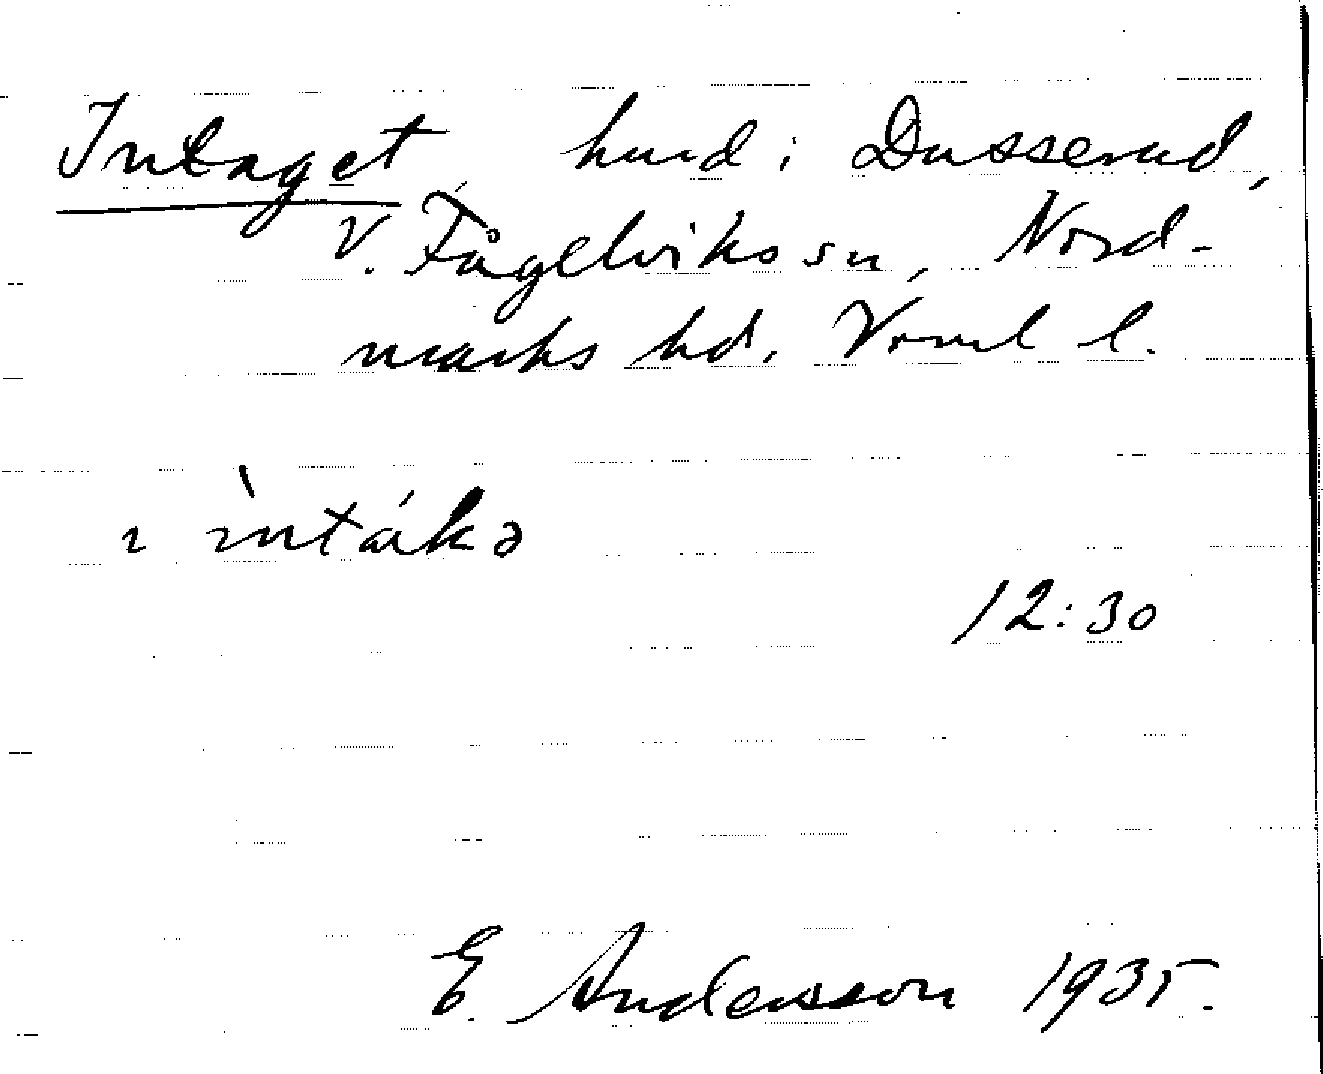 Intaget, hmd i Dusserud,
V. Fågelviks sn, Nord-
marks hd, Vrml l.
ı ìntákə
12:30
E. Andersson 1935.